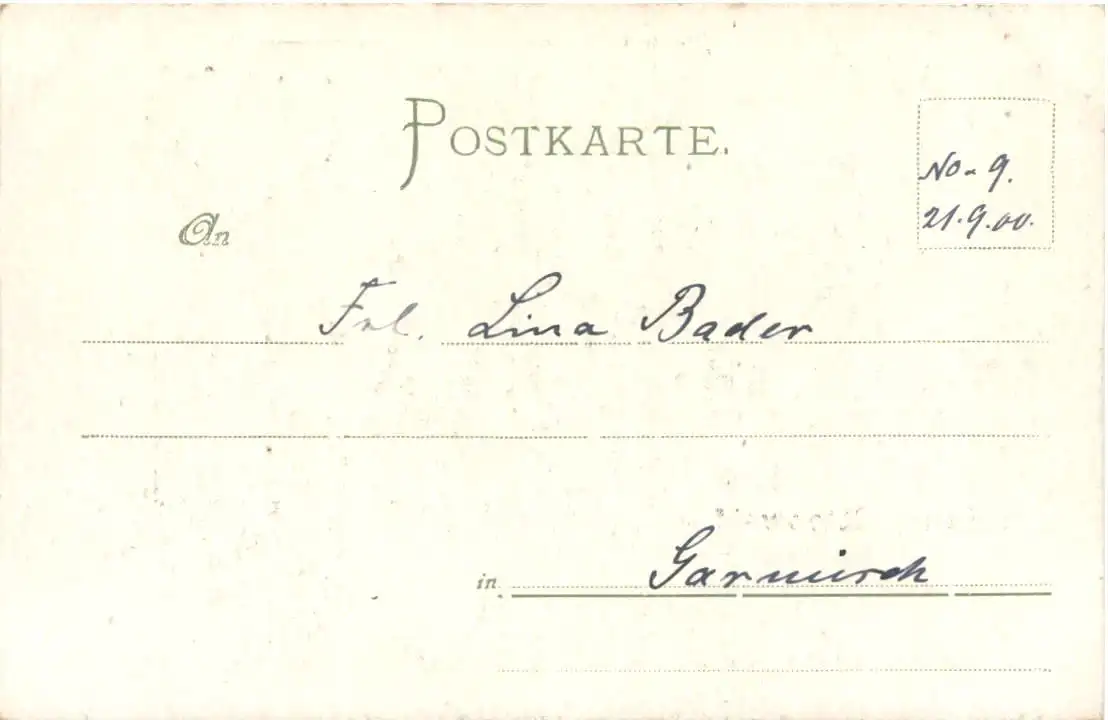 POSTKARTE.
No. 9.
21.9.00.
An
Frl. Lina Bader
in Garmisch